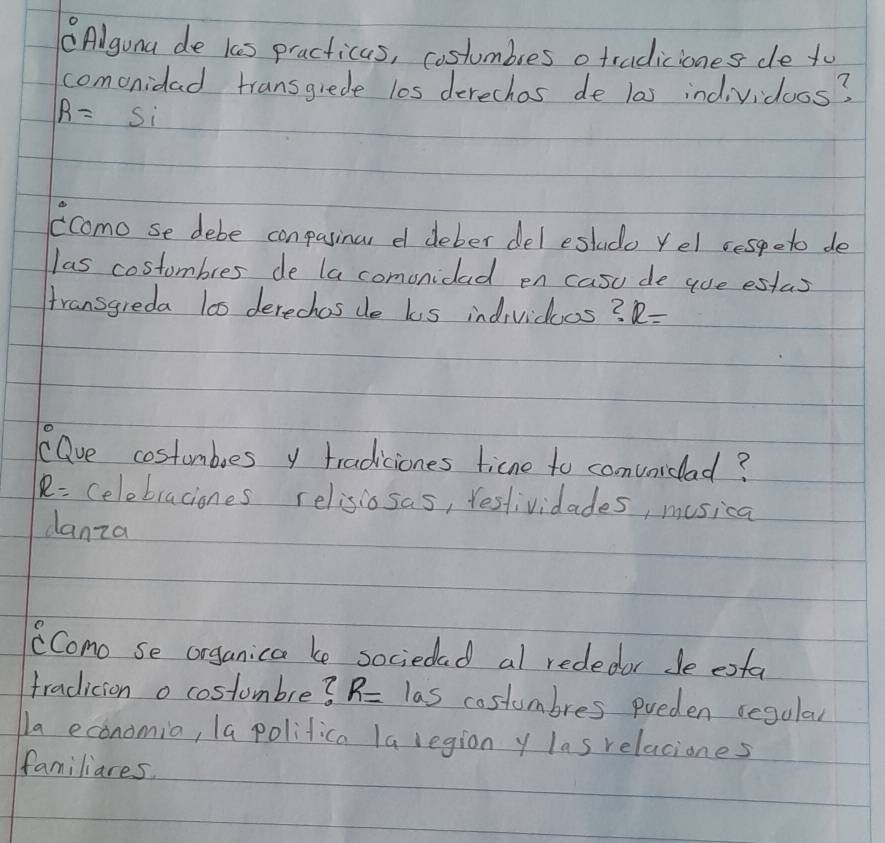 ¿Alguna de las practicas, costumbres o tradiciones de tu
comonidad transgrede los derechos de las individuos?
R= Si
¿Como se debe conpasinar el deber del estado y el respeto de
las costombres de la comunidad en caso de que estas
transgreda los derechos de los individuos? R=
¿Que costumbres y tradiciones tiene tu comunidad?
R= Celebraciones religiosas, festividades, musica
danza
¿Como se organica la sociedad al rededor de esta
tradicion o costumbre? R= las costumbres pueden regular
la economia, la politica la region y las relaciones
familiares.